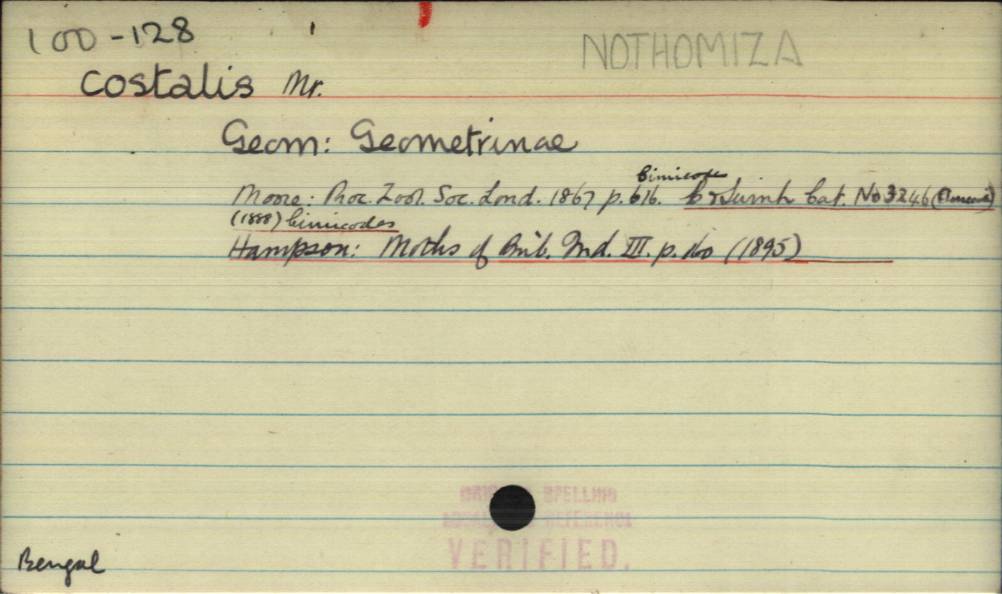 100-128
NOTHOMIZA
costalis Mr.
Geom: Geometrinae
Moore: Proc. Zool. Soc. Lond. 1867 p. 616. Cat. No 3246
(1888) bimicodes
Hampson: Moths of Brit. Ind. III. p. 160 (1895)
SPELLING
REFERENCE
VERIFIED.
Bengal